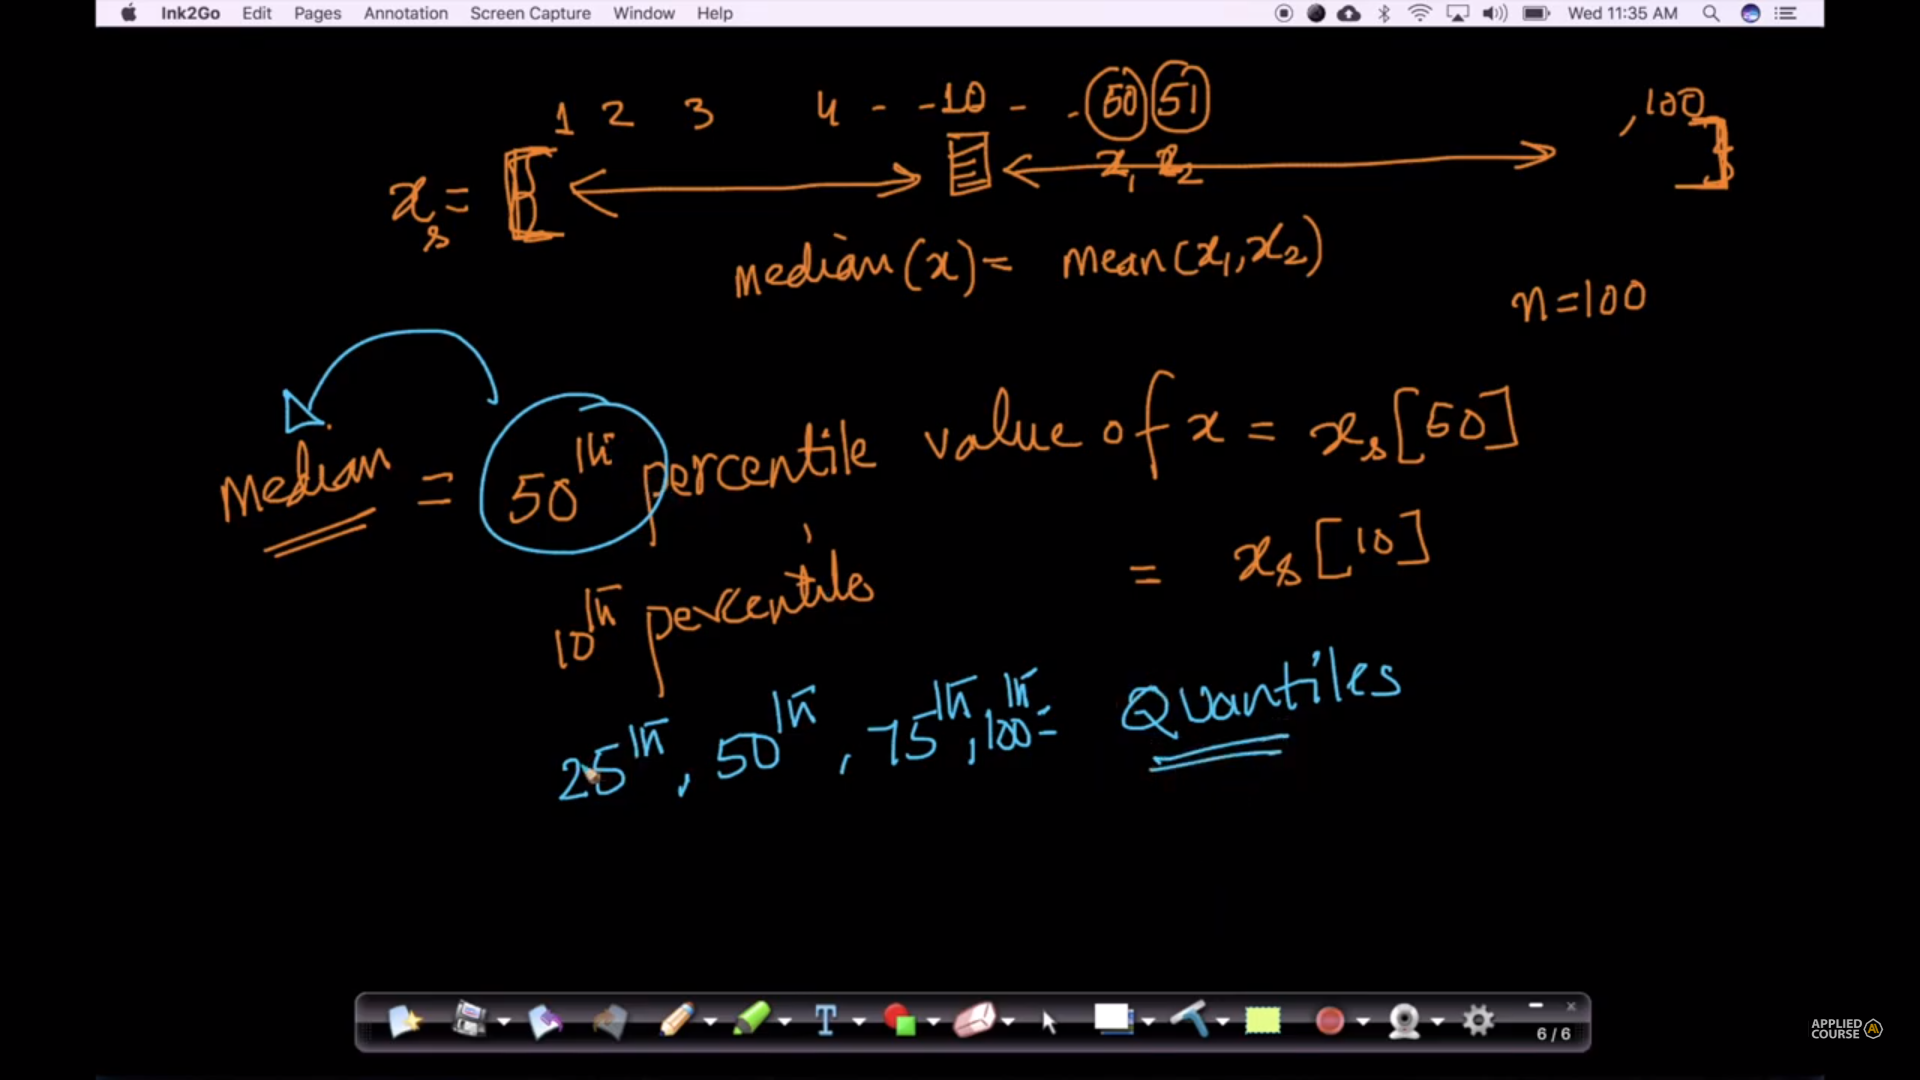 Ink2Go Edit Pages Annotation Screen Capture Window Help Wed 11:35 AM
1 2 3 4 - - 10 - - 50 51 , 100
x₁ x₂
xₛ = [ ]
median(x) = mean(x₁, x₂)
n = 100
Median = 50th percentile value of x = xₛ[50]
10th percentile = xₛ[10]
25th, 50th, 75th, 100th = Quantiles
T
6 / 6
APPLIED
COURSE